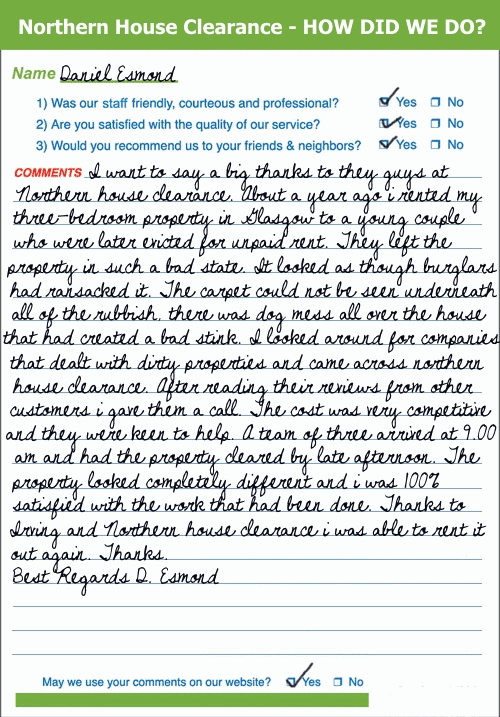 Northern House Clearance - HOW DID WE DO?
Name Daniel Esmond
1) Was our staff friendly, courteous and professional? Yes No
2) Are you satisfied with the quality of our service? Yes No
3) Would you recommend us to your friends & neighbors? Yes No
COMMENTS I want to say a big thanks to they guys at
Northern house clearance. About a year ago i rented my
three-bedroom property in Glasgow to a young couple
who were later evicted for unpaid rent. They left the
property in such a bad state. It looked as though burglars
had ransacked it. The carpet could not be seen underneath
all of the rubbish, there was dog mess all over the house
that had created a bad stink. I looked around for companies
that dealt with dirty properties and came across northern
house clearance. After reading their reviews from other
customers i gave them a call. The cost was very competitive
and they were keen to help. A team of three arrived at 9.00
am and had the property cleared by late afternoon. The
property looked completely different and i was 100%
satisfied with the work that had been done. Thanks to
Irving and Northern house clearance i was able to rent it
out again. Thanks.
Best Regards D. Esmond
May we use your comments on our website? Yes No